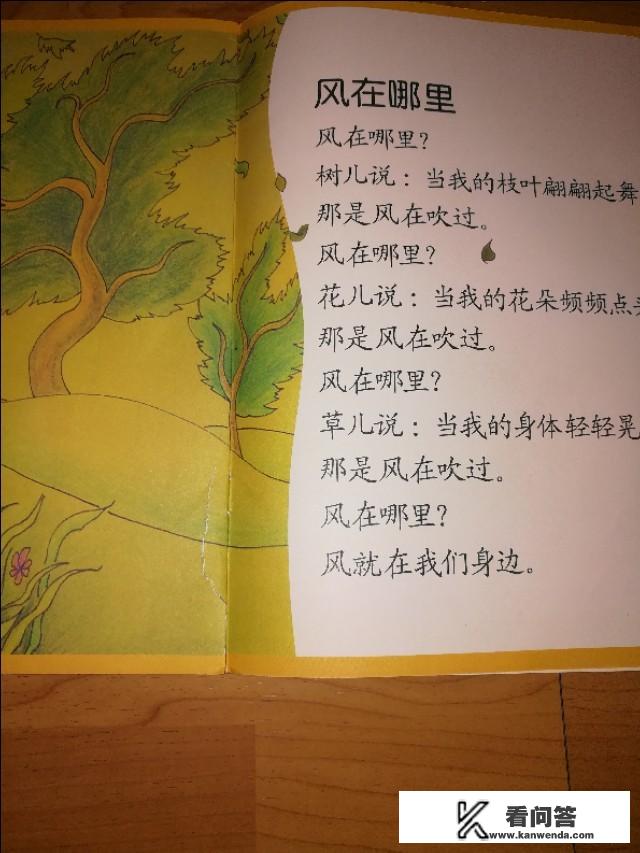 风在哪里
风在哪里？
树儿说：当我的枝叶翩翩起舞
那是风在吹过。
风在哪里？
花儿说：当我的花朵频频点
那是风在吹过。
风在哪里？
草儿说：当我的身体轻轻晃
那是风在吹过。
风在哪里？
风就在我们身边。
看问答
www.kanwenda.com